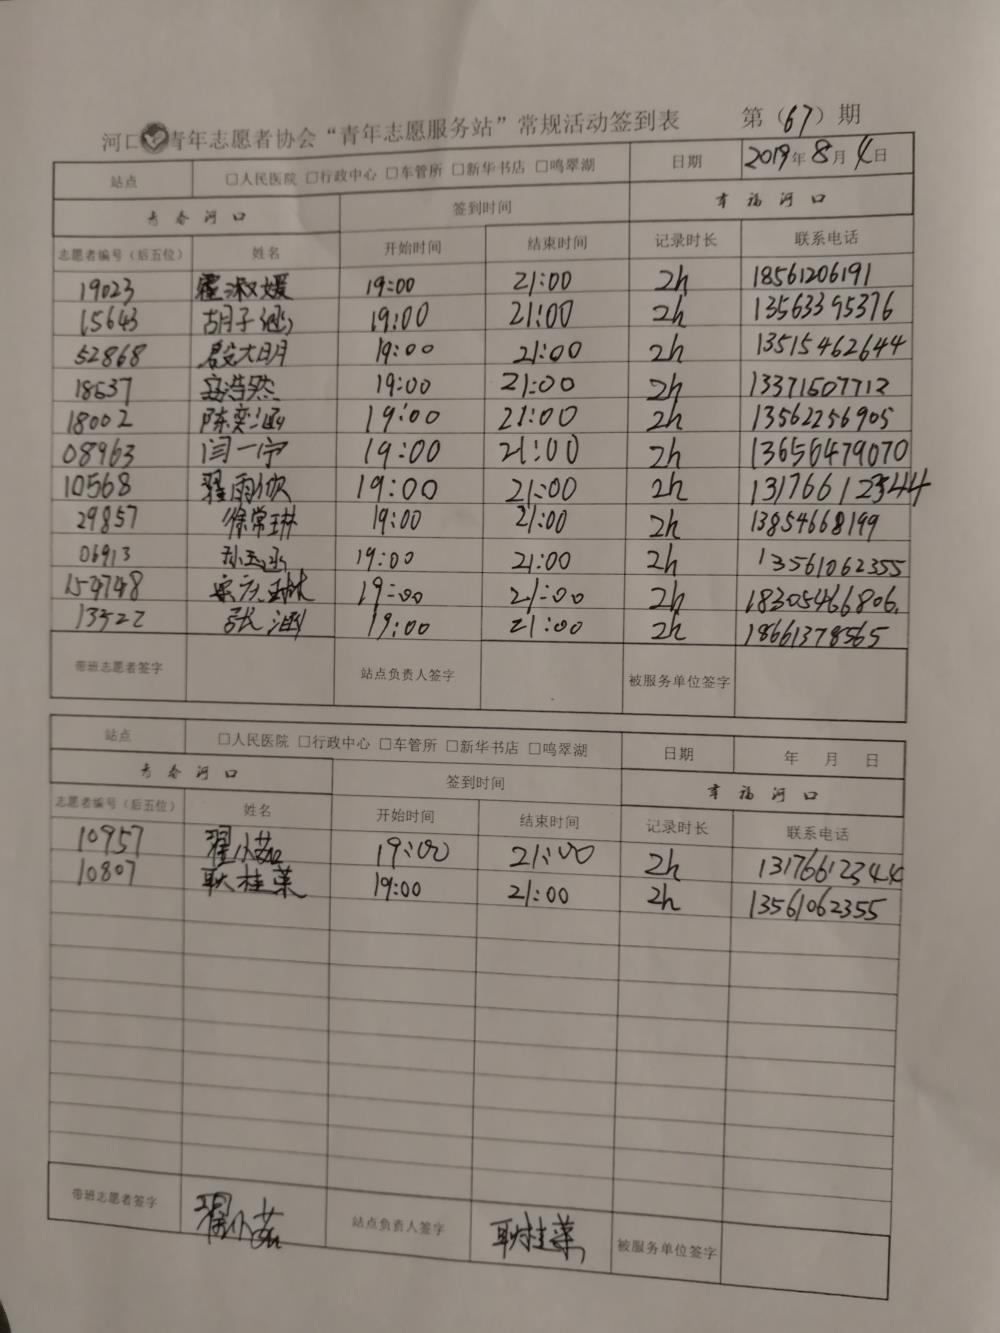 河口青年志愿者协会“青年志愿服务站”常规活动签到表 第（67）期
站点 □人民医院 □行政中心 □车管所 □新华书店 □鸣翠湖 日期 2019年8月4日
青春河口 签到时间 幸福河口
志愿者编号（后五位） 姓名 开始时间 结束时间 记录时长 联系电话
19023 霍淑媛 19:00 21:00 2h 18561206191
15643 胡子涵 19:00 21:00 2h 13563395376
52868 19:00 21:00 2h 13515462644
18637 浩然 19:00 21:00 2h 13371507712
18002 陈奕涵 19:00 21:00 2h 13562256905
08963 闫一宁 19:00 21:00 2h 13656479070
10568 翟雨欣 19:00 21:00 2h 13176612344
29857 徐常琳 19:00 21:00 2h 13854668199
06913 孙玉涵 19:00 21:00 2h 13561062355
159748 19:00 21:00 2h 18305466806
13522 张涵 19:00 21:00 2h 18661378565
带班志愿者签字 站点负责人签字 被服务单位签字
站点 □人民医院 □行政中心 □车管所 □新华书店 □鸣翠湖 日期 年 月 日
青春河口 签到时间 幸福河口
志愿者编号（后五位） 姓名 开始时间 结束时间 记录时长 联系电话
10957 翟小茹 19:00 21:00 2h 13176612344
10807 耿桂菜 19:00 21:00 2h 13561062355
带班志愿者签字 翟小茹 站点负责人签字 耿桂菜 被服务单位签字